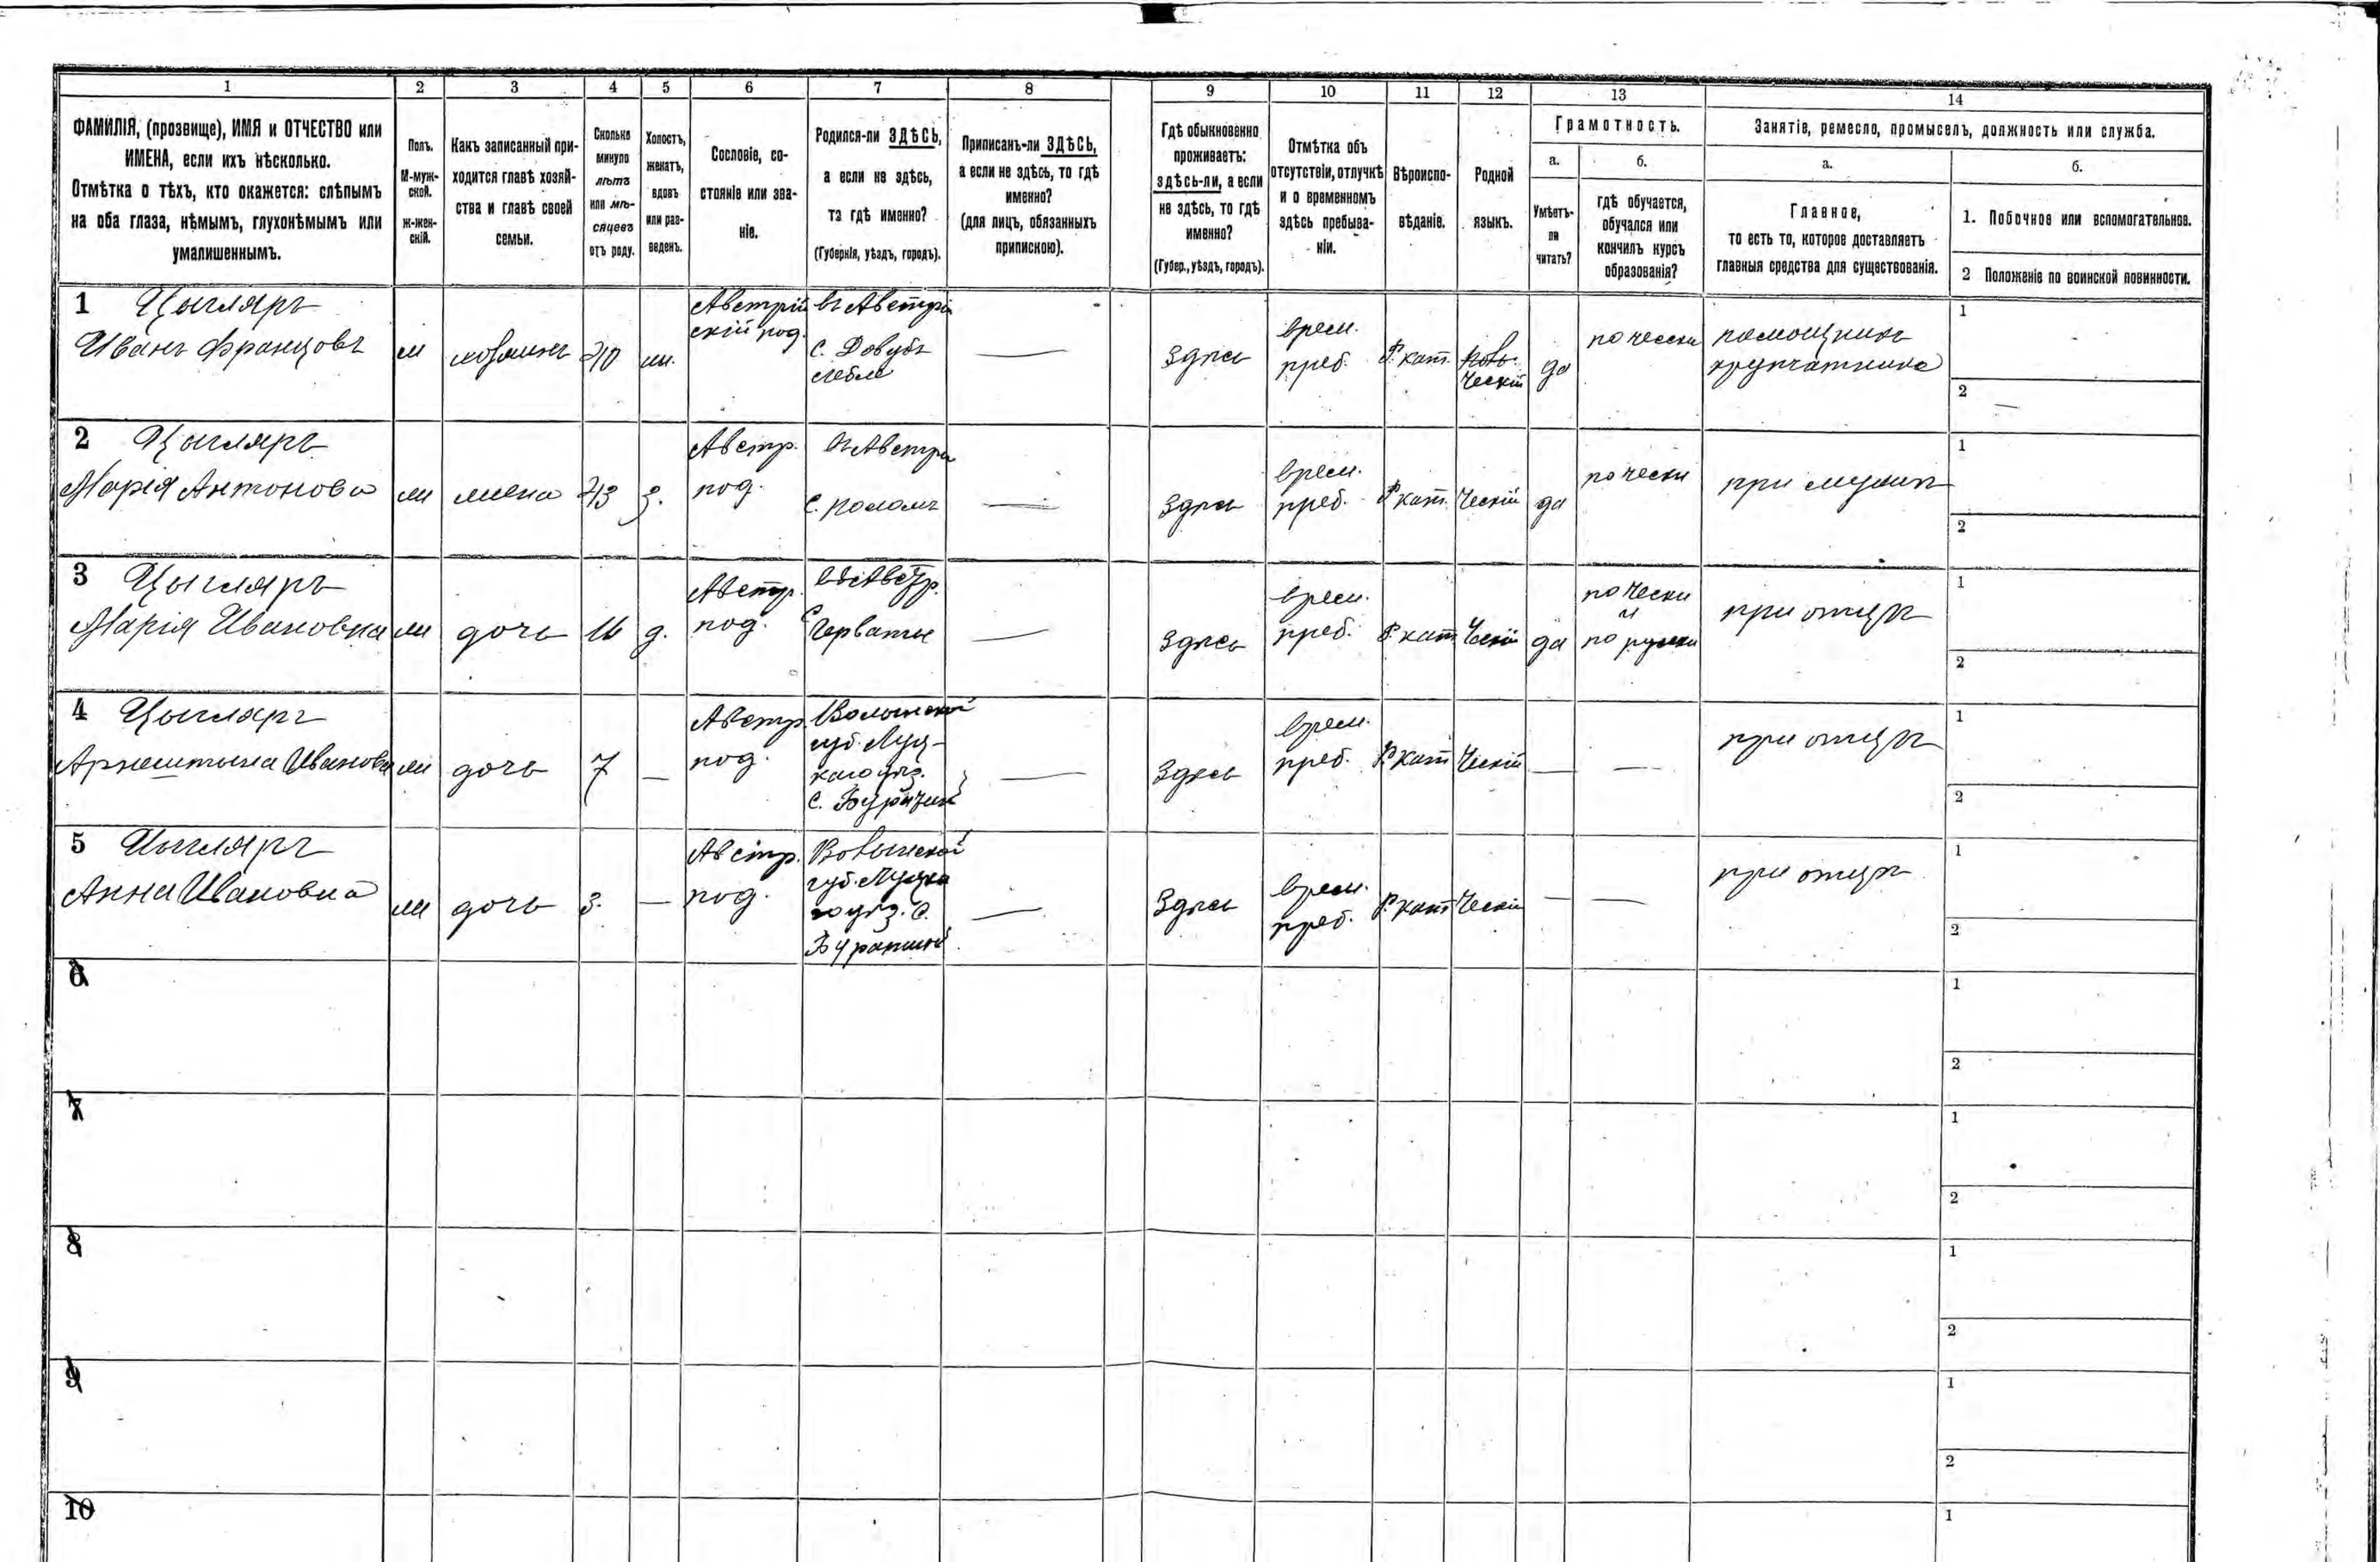 1 2 3 4 5 6 7 8 9 10 11 12 13 14
ФАМИЛІЯ, (прозвище), ИМЯ и ОТЧЕСТВО или
ИМЕНА, если ихъ нѣсколько.
Отмѣтка о тѣхъ, кто окажется: слѣпымъ
на оба глаза, нѣмымъ, глухонѣмымъ или
умалишеннымъ.
Полъ.
М-муж-
ской.
ж-жен-
скій.
Какъ записанный при-
ходится главѣ хозяй-
ства и главѣ своей
семьи.
Сколько
минуло
лѣтъ
или мѣ-
сяцевъ
отъ роду.
Холостъ,
женатъ,
вдовъ
или раз-
веденъ.
Сословіе, со-
стояніе или зва-
ніе.
Родился-ли ЗДѢСЬ,
а если не здѣсь,
то гдѣ именно?
(Губернія, уѣздъ, городъ).
Приписанъ-ли ЗДѢСЬ,
а если не здѣсь, то гдѣ
именно?
(для лицъ, обязанныхъ
припискою).
Гдѣ обыкновенно
проживаетъ:
здѣсь-ли, а если
не здѣсь, то гдѣ
именно?
(Губер., уѣздъ, городъ).
Отмѣтка объ
отсутствіи, отлучкѣ
и о временномъ
здѣсь пребыва-
ніи.
Вѣроиспо-
вѣданіе.
Родной
языкъ.
Грамотность.
а.
Умѣетъ-
ли
читать?
б.
гдѣ обучается,
обучался или
кончилъ курсъ
образованія?
Занятіе, ремесло, промыселъ, должность или служба.
а.
Главное,
то есть то, которое доставляетъ
главныя средства для существованія.
б.
1. Побочное или вспомогательное.
2 Положеніе по воинской повинности.
1 Цыгляръ
Иванъ Францовъ
м
хозяинъ
40
жн.
Австрій
скій под.
въ Австріи
с.
—
здѣсь
врем.
преб.
Р. кат.
Ческій
да
по чески
помощникъ
крупчатника
1
2 —
2 Цыгляръ
Марія Антонова
ж
жена
43
з.
Австр.
под.
въ Австріи
с.
—
здѣсь
врем.
преб.
Р. кат.
Ческій
да
по чески
при мужѣ
1
2
3 Цыгляръ
Марія Ивановна
ж
дочь
16
д.
Австр.
под.
въ Австр.
с. Черваты
—
здѣсь
врем.
преб.
Р. кат.
Ческій
да
по чески
и
по русски
при отцѣ
1
2
4 Цыгляръ
Арнештына Иванова
ж
дочь
7
—
Австр.
под.
Волынской
губ. Луц-
каго уѣз.
с.
—
здѣсь
врем.
преб.
Р. кат
Ческій
—
—
при отцѣ
1
2
5 Цыгляръ
Анна Ивановна
ж
дочь
3.
—
Австр.
под.
Волынской
губ. Луцка
го уѣз. с.
—
здѣсь
врем.
преб.
Р. кат
Ческій
—
—
при отцѣ
1
2
6
1
2
7
1
2
8
1
2
9
1
2
10
1